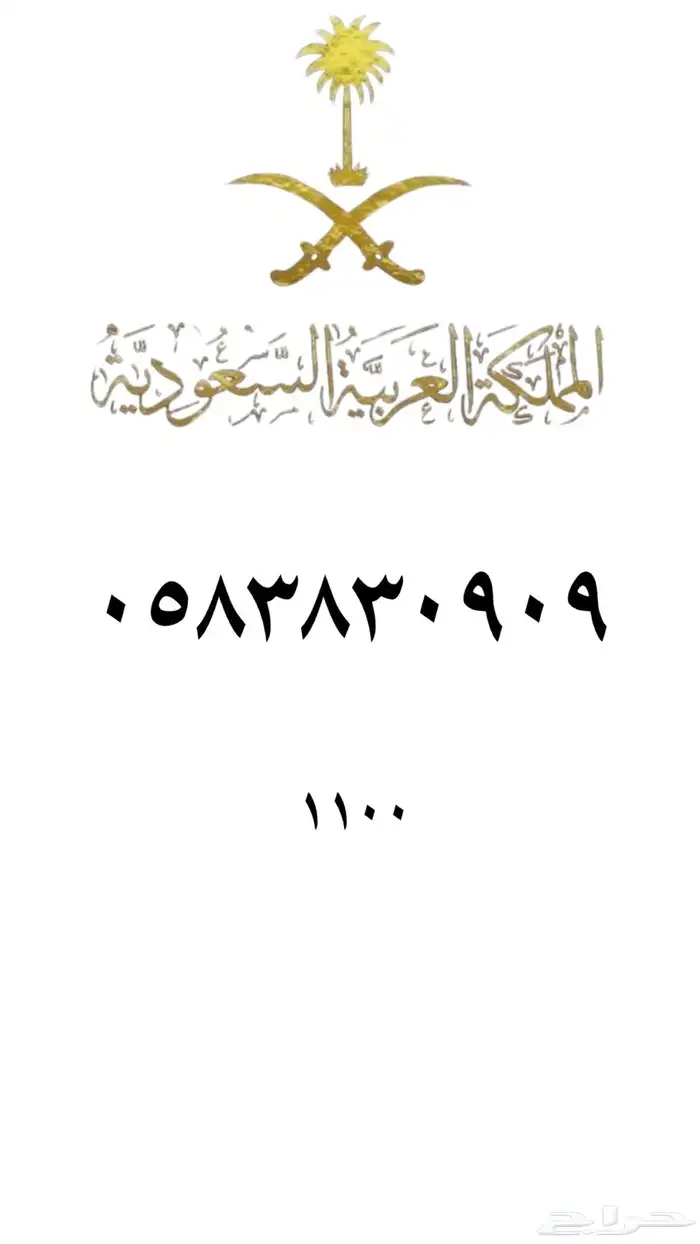 المملكة العربية السعودية
٠٥٨٣٨٣٠٩٠٩
١١٠٠
حراج